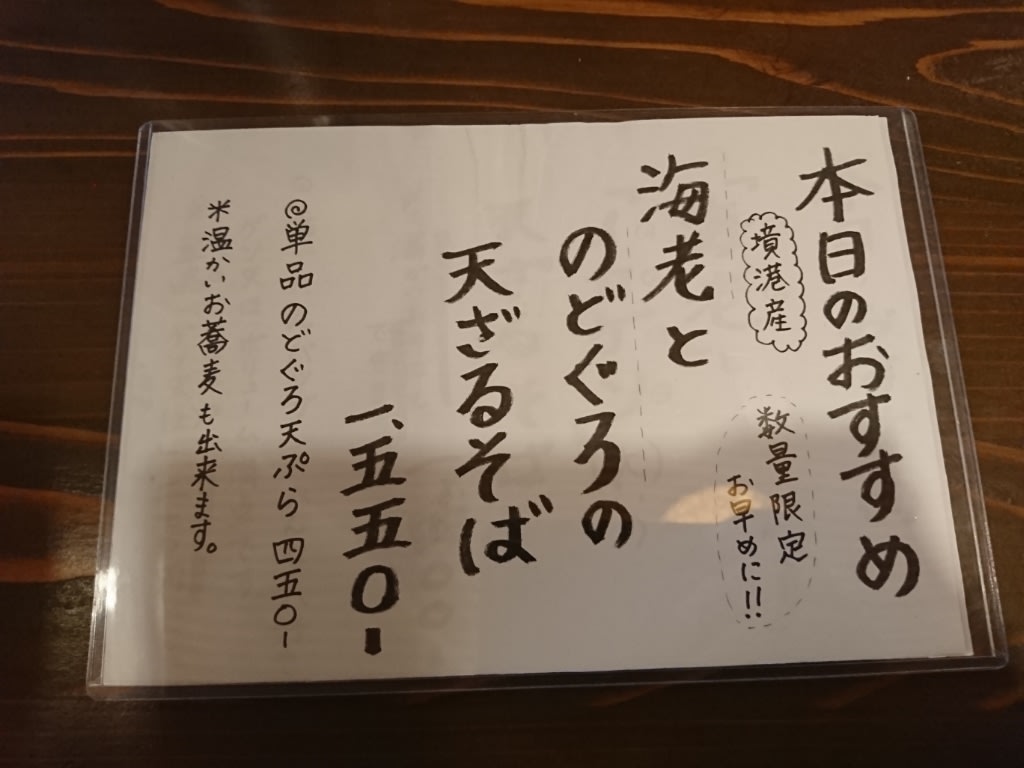 本日のおすすめ
墳港産
数量限定
お早めに!!
海老と
のどぐろの
天ざるそば
一、五五〇ー
◎単品 のどぐろ天ぷら 四五〇ー
※温かいお蕎麦も出来ます。